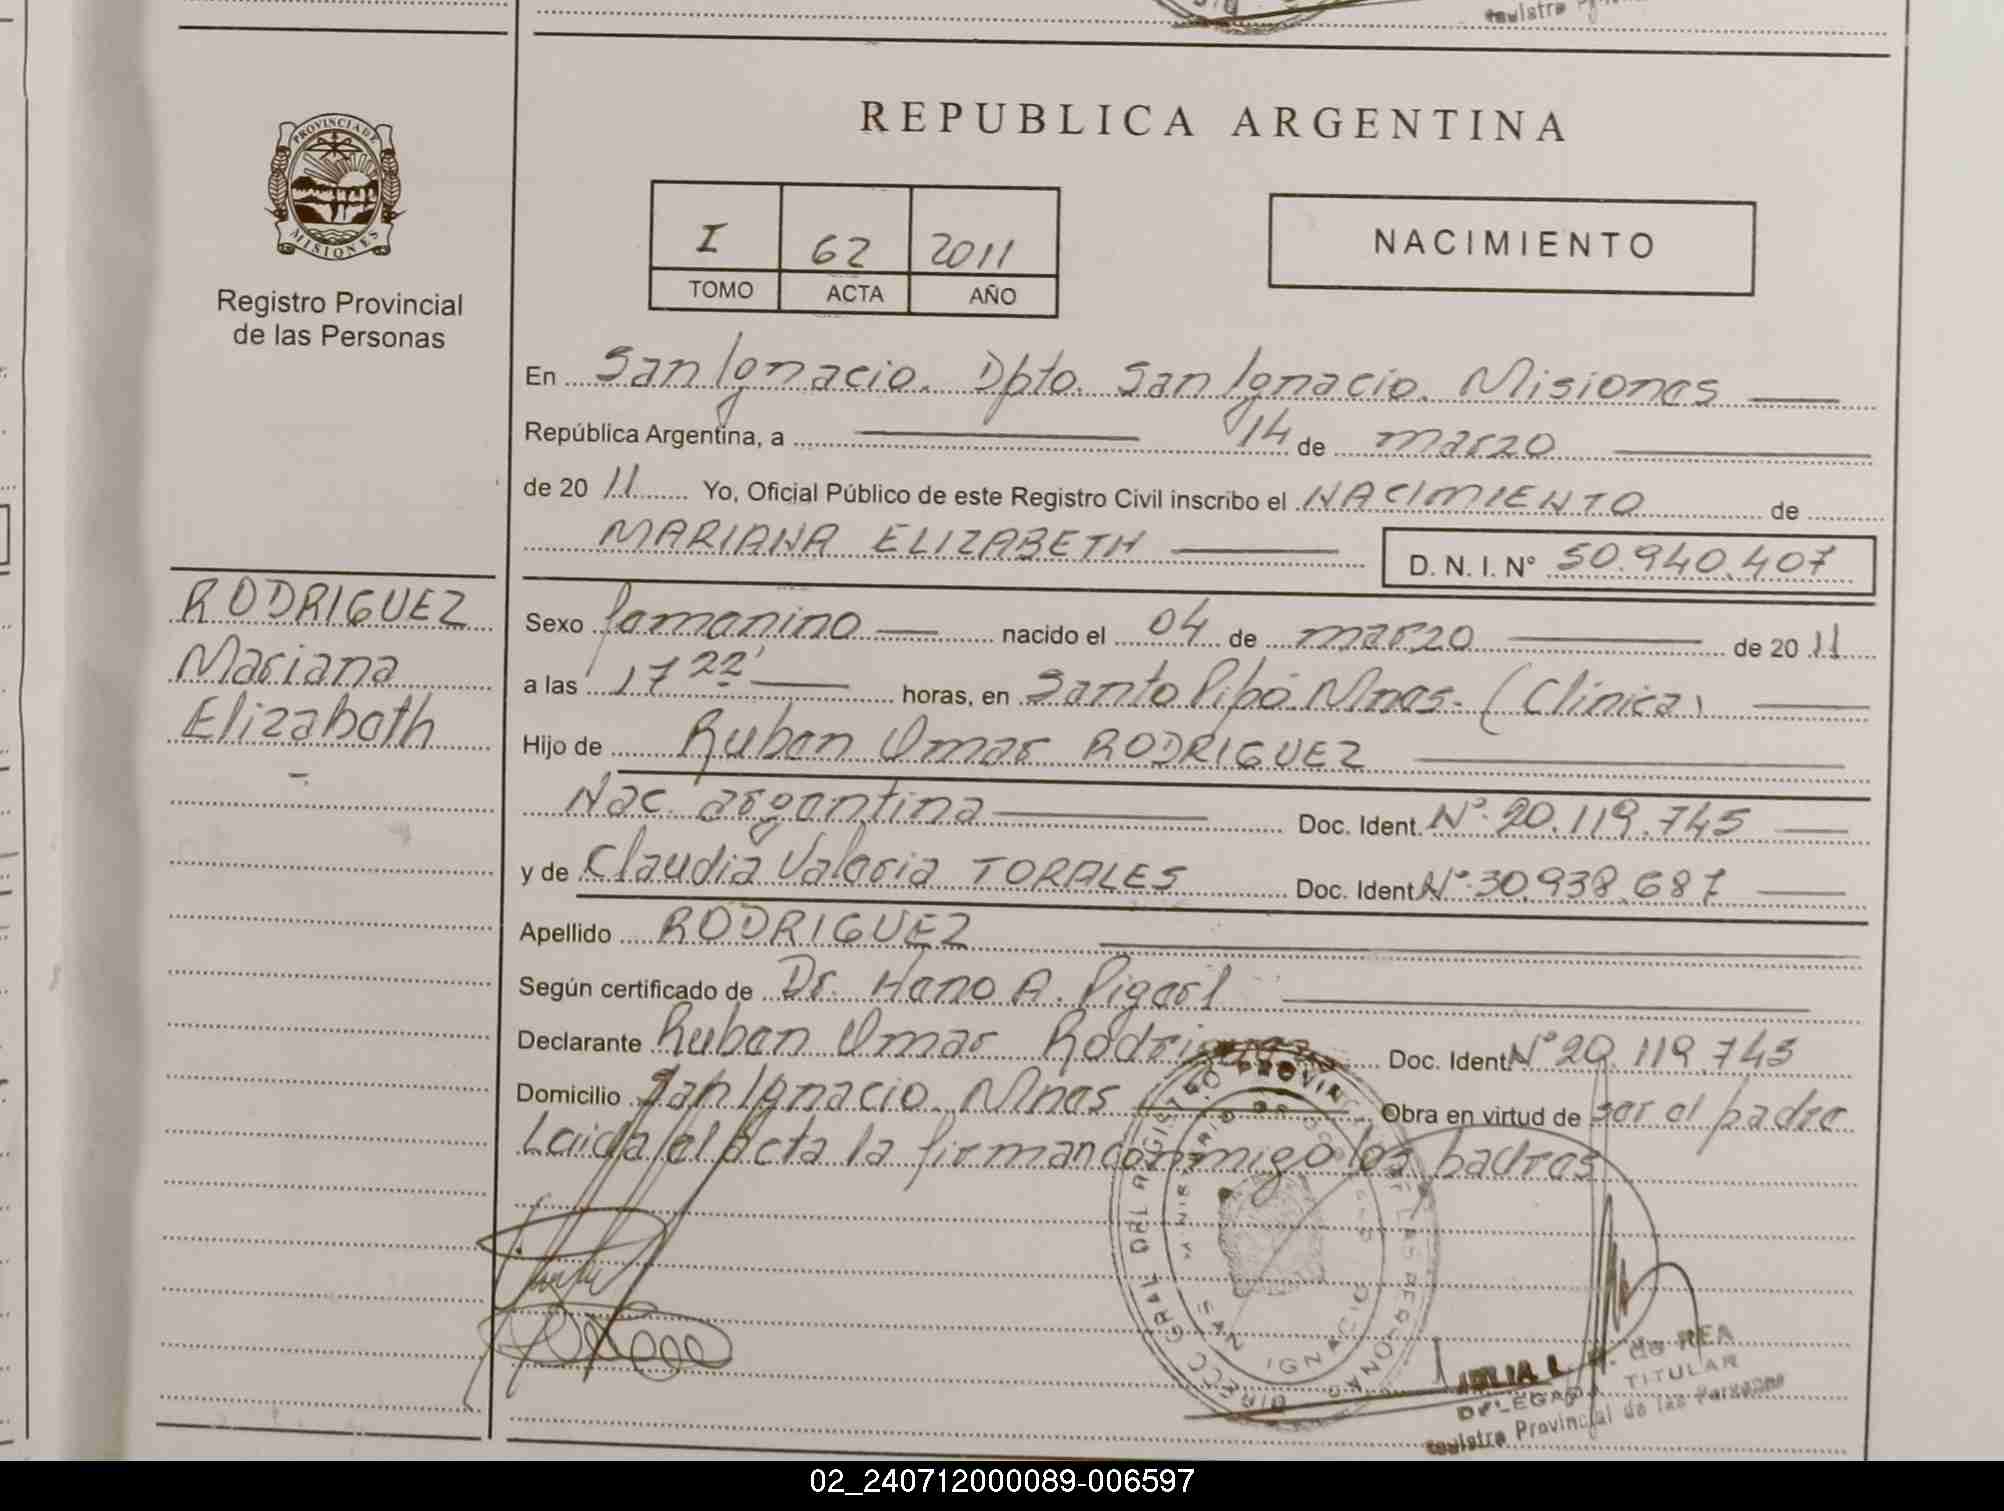 REPUBLICA ARGENTINA
PROVINCIA DE
MISIONES
Registro Provincial
de las Personas
I 62 2011
TOMO ACTA AÑO
NACIMIENTO
En San Ignacio. Dpto. San Ignacio. Misiones
República Argentina, a 14 de marzo
de 20 11 Yo, Oficial Público de este Registro Civil inscribo el NACIMIENTO de
MARIANA ELIZABETH D. N. I. Nº 50.940.407
RODRIGUEZ
Mariana
Elizabeth
Sexo femenino nacido el 04 de marzo de 20 11
a las 17 22' horas, en Santo Pipó. Mnes. (Clínica)
Hijo de Ruben Omar RODRIGUEZ
Nac. argentina Doc. Ident. Nº 20.119.745
y de Claudia Valeria TORALES Doc. Ident. Nº 30.938.687
Apellido RODRIGUEZ
Según certificado de Dr. A.
Declarante Ruben Omar Rodriguez Doc. Ident. Nº 20.119.745
Domicilio San Ignacio. Mnes Obra en virtud de ser el padre
Leida el acta la firman conmigo los padres
DIRECC GRAL DEL REGISTRO PROVINC DE LAS PERSONAS
SAN IGNACIO
JULIA L. de REA
DELEGADA TITULAR
Registro Provincial de las Personas
02_240712000089-006597